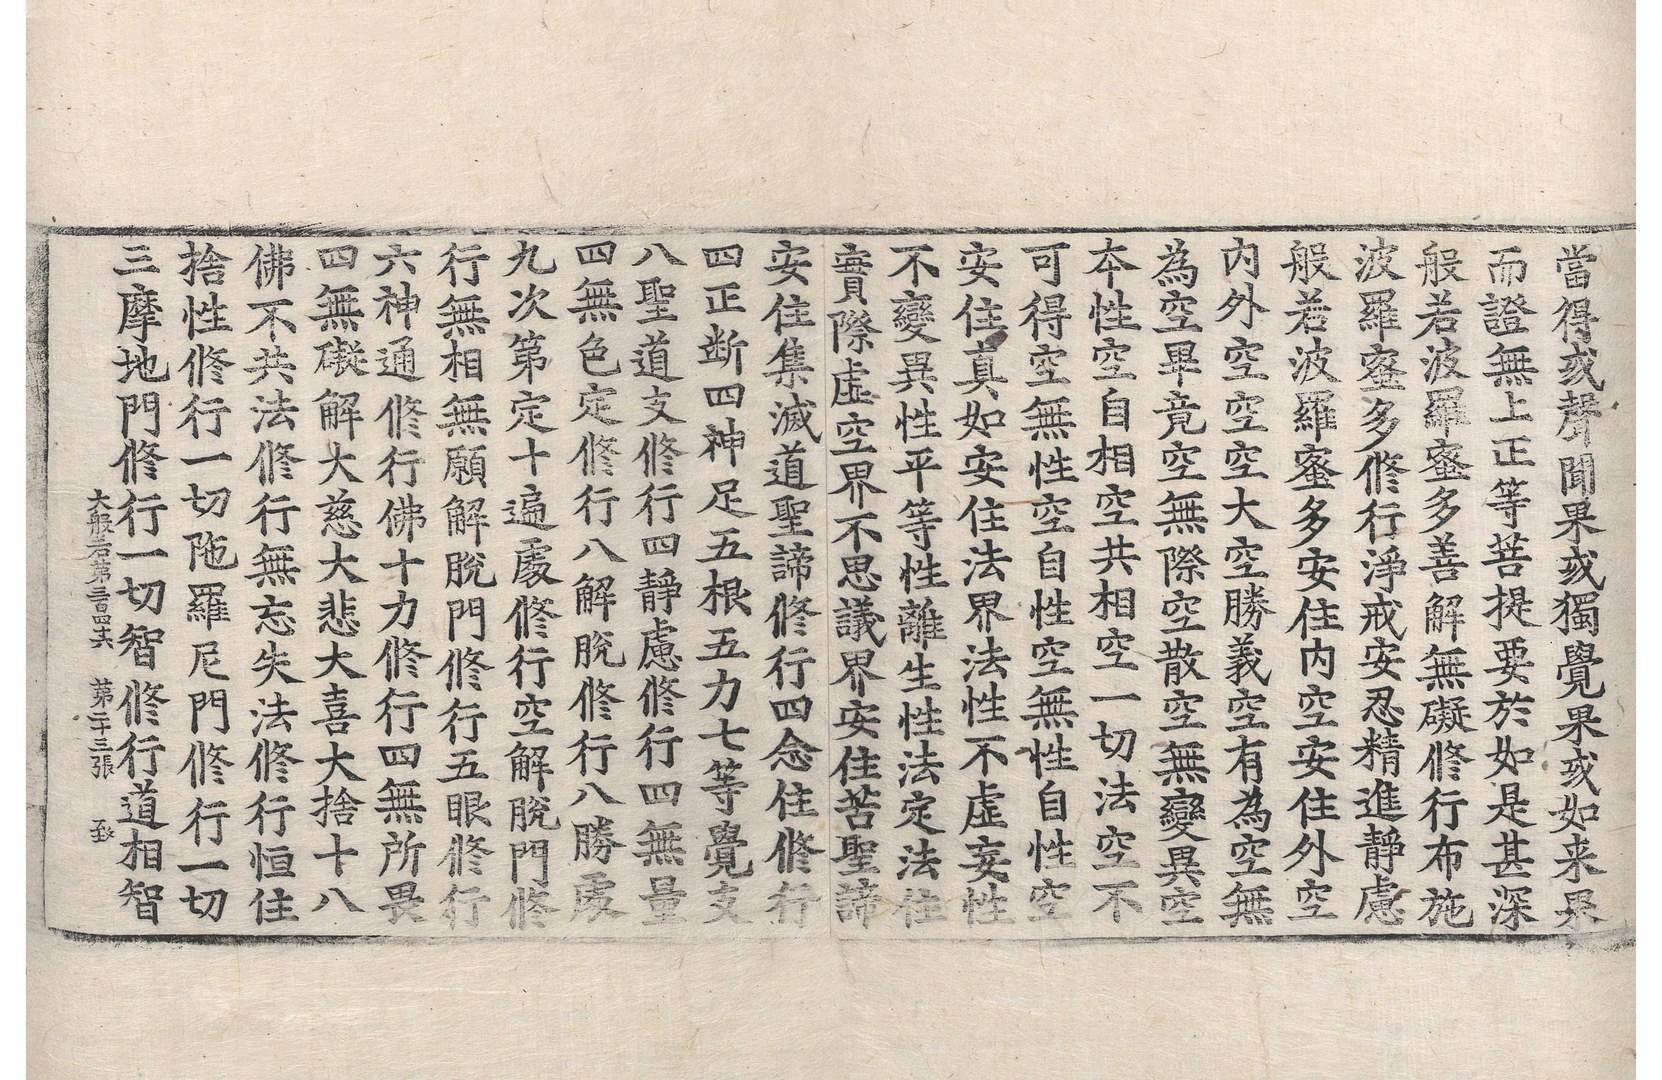 當得或聲聞果或獨覺果或如来果
而證無上正等菩提要於如是甚深
般若波羅蜜多善解無礙修行布施
波羅蜜多修行淨戒安忍精進靜慮
般若波羅蜜多安住内空安住外空
内外空空空大空勝義空有為空無
為空畢竟空無際空散空無變異空
本性空自相空共相空一切法空不
可得空無性空自性空無性自性空
安住真如安住法界法性不虛妄性
不變異性平等性離生性法定法住
實際虛空界不思議界安住苦聖諦
安住集滅道聖諦修行四念住修行
四正断四神足五根五力七等覺支
八聖道支修行四靜慮修行四無量
四無色定修行八解脫修行八勝處
九次第定十遍處修行空解脫門修
行無相無願解脫門修行五眼修行
六神通修行佛十力修行四無所畏
四無礙解大慈大悲大喜大捨十八
佛不共法修行無忘失法修行恒住
捨性修行一切陁羅尼門修行一切
三摩地門修行一切智修行道相智
大般若第三百四十六 第二十三張 致